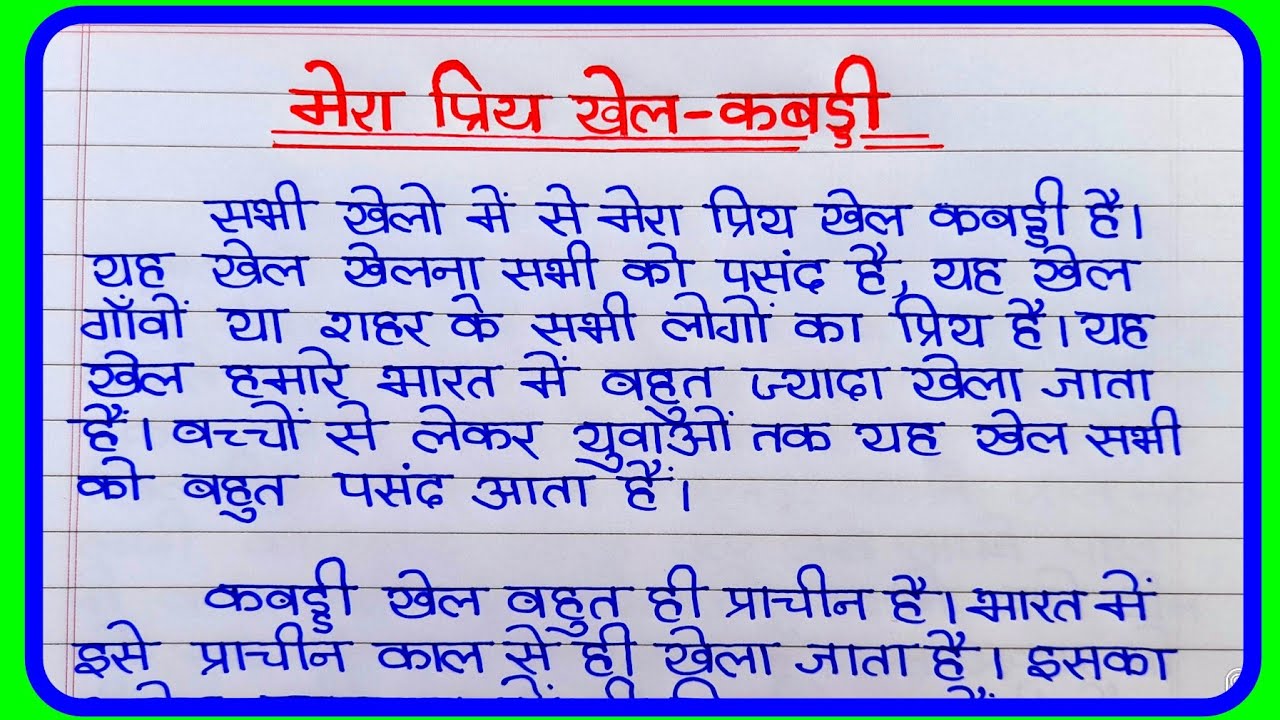 मेरा प्रिय खेल-कबड्डी
सभी खेलो में से मेरा प्रिय खेल कबड्डी है।
यह खेल खेलना सभी को पसंद है, यह खेल
गाँवों या शहर के सभी लोगों का प्रिय है। यह
खेल हमारे भारत में बहुत ज्यादा खेला जाता
हैं। बच्चों से लेकर युवाओं तक यह खेल सभी
को बहुत पसंद आता हैं।
कबड्डी खेल बहुत ही प्राचीन है। भारत में
इसे प्राचीन काल से ही खेला जाता है। इसका